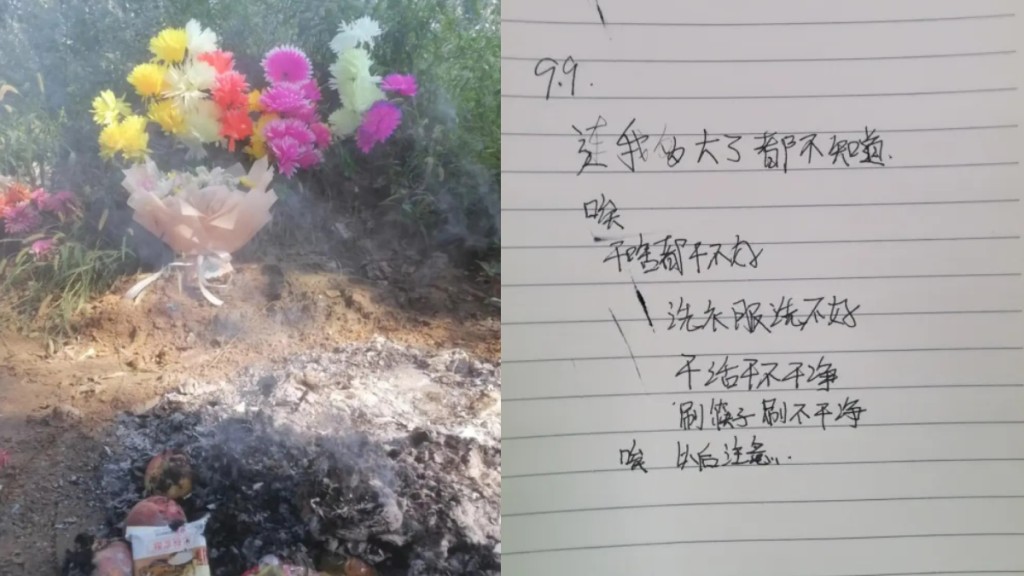 9.9.
连我的大了都不知道.
唉
干啥都干不好
洗衣服洗不好
干活干不干净
刷筷子刷不干净
唉 以后注意...